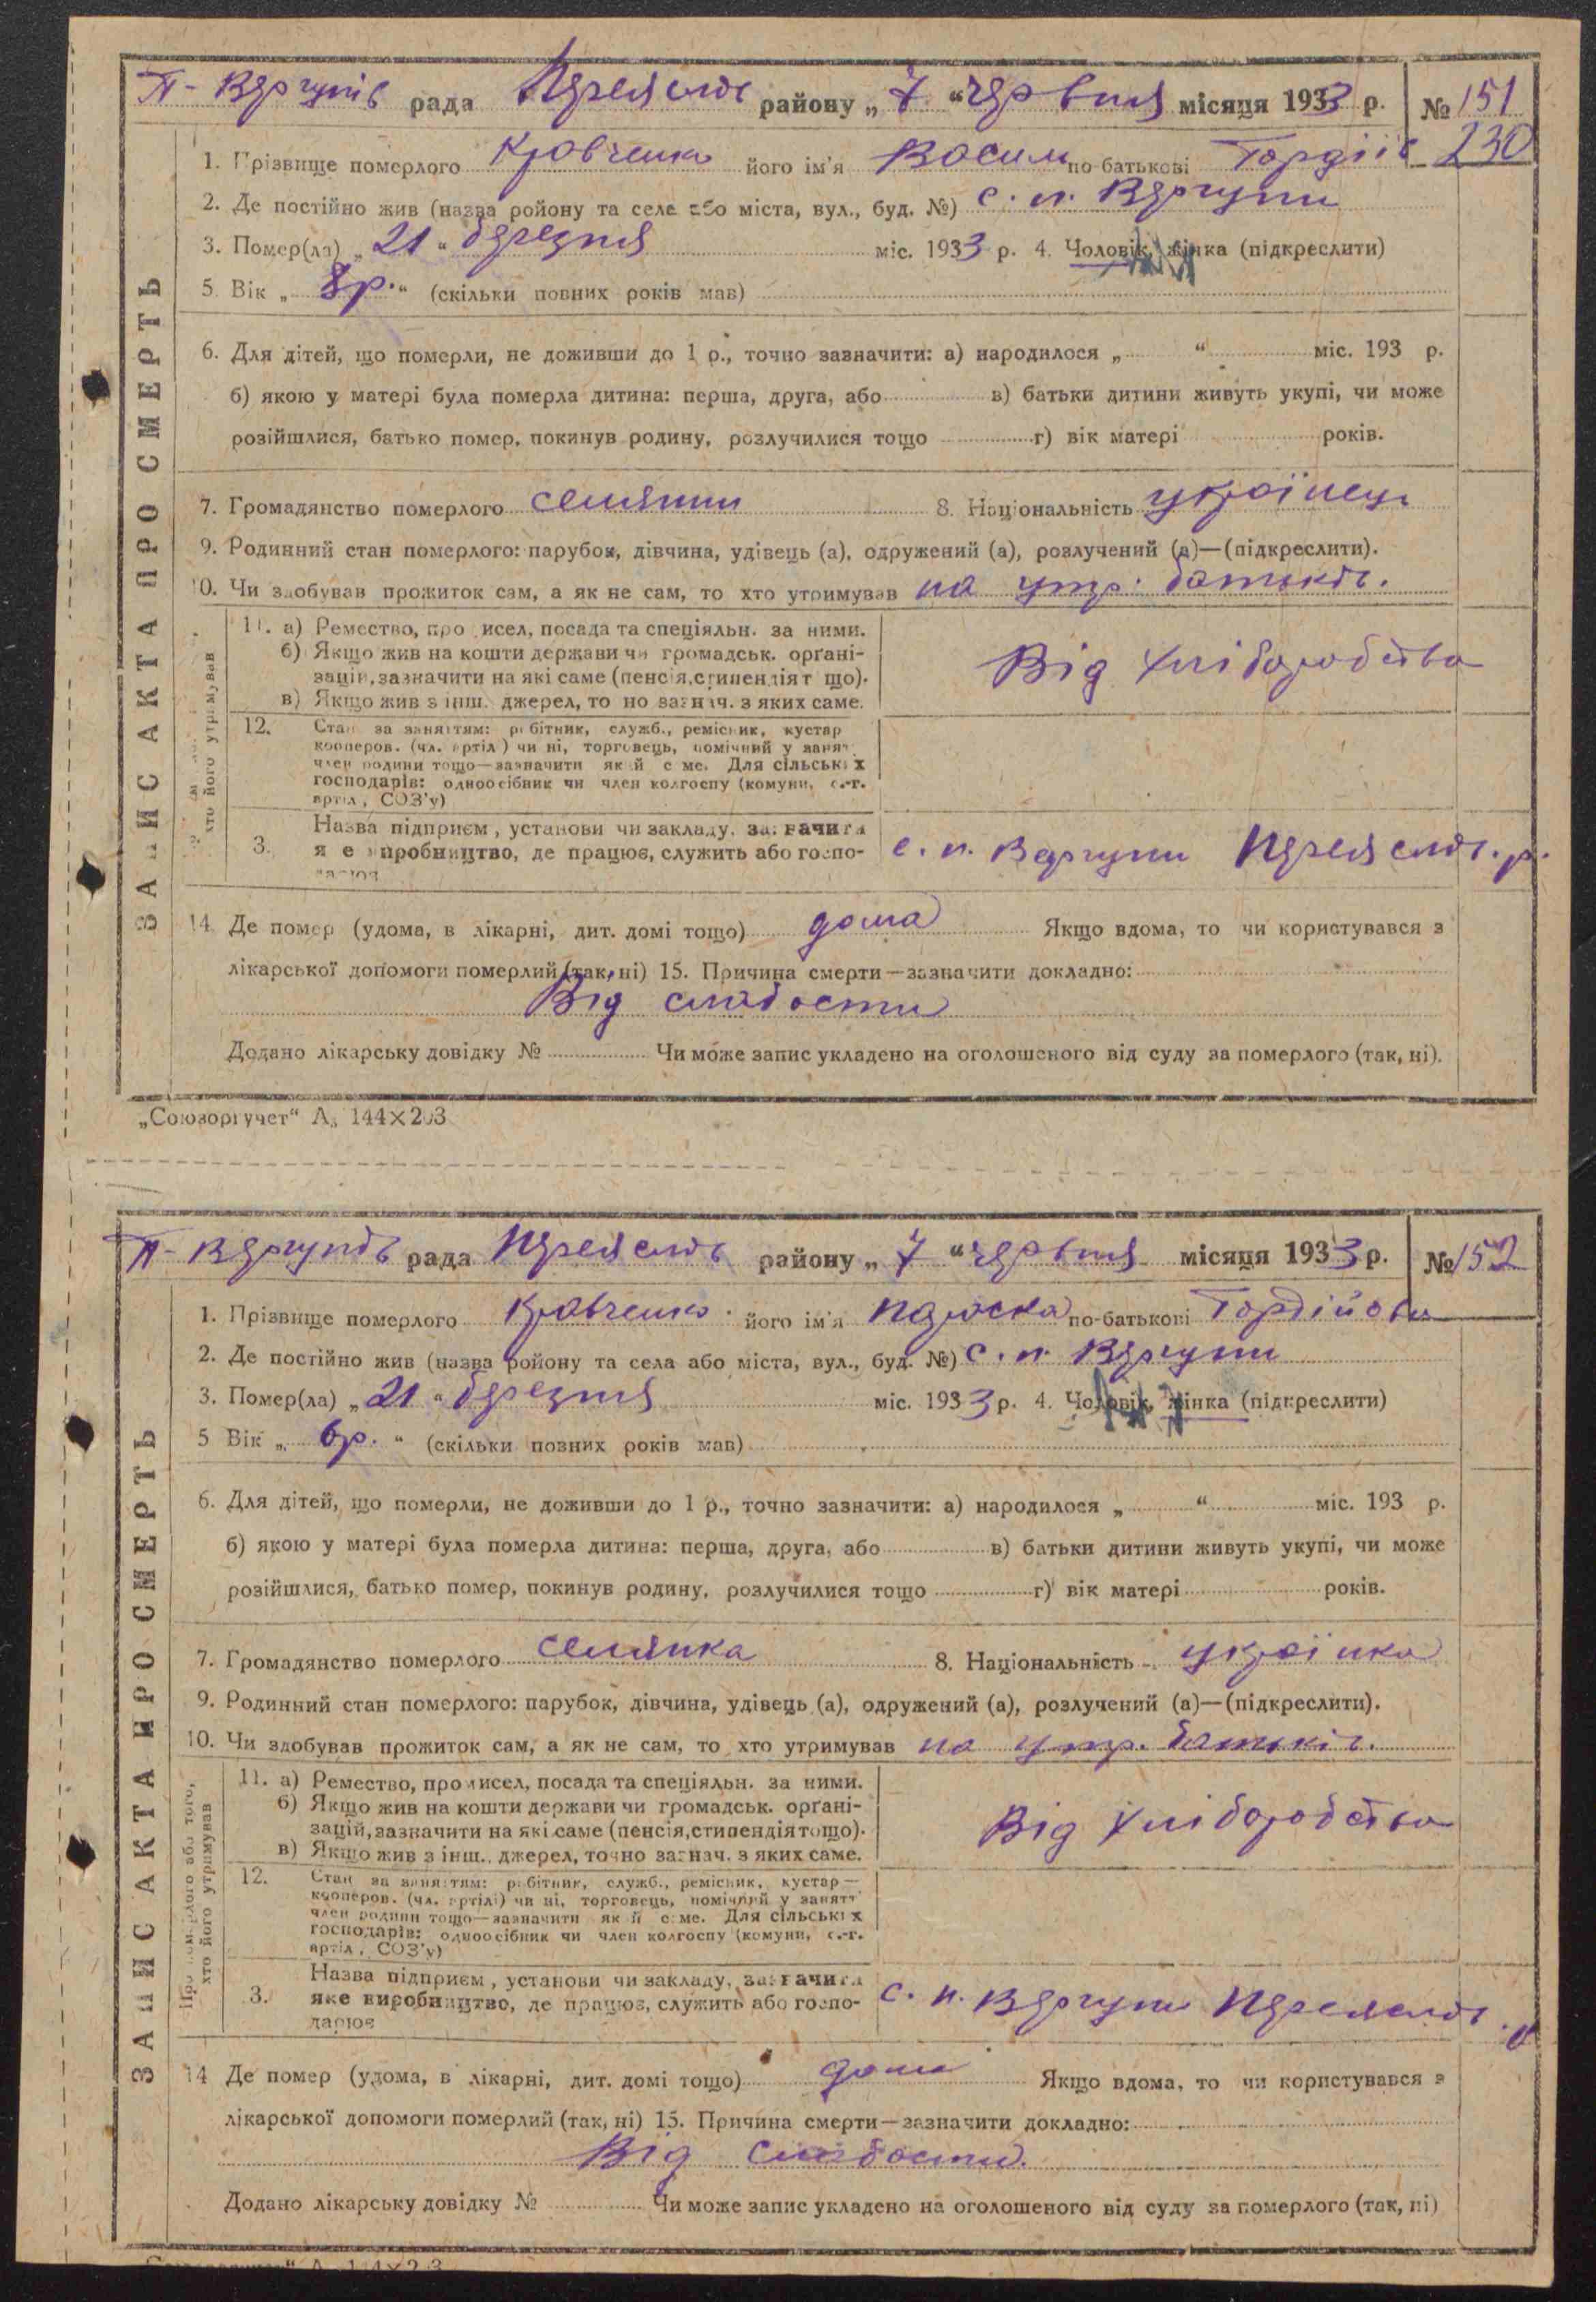 П-Вергунів рада Переяслів району „ 7 “ червня місяця 1933 р. № 151
230
1. Прізвище померлого Кравченко його ім'я Василь по-батькові Гордіїв
2. Де постійно жив (назва ройону та села або міста, вул., буд. №) с. п. Вергуни
3. Помер(ла) „ 21 “ березня міс. 1933 р. 4. Чоловік, жінка (підкреслити)
5. Вік „ 8р. “ (скільки повних років мав)
6. Для дітей, що померли, не доживши до 1 р., точно зазначити: а) народилося „ “ міс. 193 р.
б) якою у матері була померла дитина: перша, друга, або в) батьки дитини живуть укупі, чи може
розійшлися, батько помер, покинув родину, розлучилися тощо г) вік матері років.
7. Громадянство померлого селянин 8. Національність українець
9. Родинний стан померлого: парубок, дівчина, удівець (а), одружений (а), розлучений (а)—(підкреслити).
10. Чи здобував прожиток сам, а як не сам, то хто утримував на утр. батьків.
хто його утримував
11. а) Ремество, про исел, посада та спеціяльн. за ними.
б) Якщо жив на кошти держави чи громадськ. органі-
зацій, зазначити на які саме (пенсія, стипендія т що).
в) Якщо жив з інш. джерел, то но зазнач. з яких саме.
Від хліборобства
12. Стан за заняттям: робітник, служб., ремісник, кустар
кооперов. (чл. артіл ) чи ні, торговець, помічний у занят
член родини тощо—зазначити якай с ме. Для сільських
господарів: одноосібник чи член колгоспу (комуни, с.-г.
артіл, СОЗ'у)
3. Назва підприєм, установи чи закладу, зазначити
яке виробництво, де працює, служить або госпо-
дарює
с. п. Вергуни Переяслів. р.
ЗАПИС АКТА ПРО СМЕРТЬ
14. Де помер (удома, в лікарні, дит. домі тощо) дома Якщо вдома, то чи користувався з
лікарської допомоги померлий (так, ні) 15. Причина смерти—зазначити докладно:
Від слабости
Додано лікарську довідку № Чи може запис укладено на оголошеного від суду за померлого (так, ні).
„Союзоргучет“ А₅ 144×203
П-Вергунів рада Переяслів району „ 7 “ червня місяця 1933 р. № 152
1. Прізвище померлого Кравченко його ім'я Параска по-батькові Гордійовн
2. Де постійно жив (назва ройону та села або міста, вул., буд. №) с. п. Вергуни
3. Помер(ла) „ 21 “ березня міс. 1933 р. 4. Чоловік, жінка (підкреслити)
5 Вік „ 6р. “ (скільки повних років мав)
6. Для дітей, що померли, не доживши до 1 р., точно зазначити: а) народилося „ “ міс. 193 р.
б) якою у матері була померла дитина: перша, друга, або в) батьки дитини живуть укупі, чи може
розійшлися, батько помер, покинув родину, розлучилися тощо г) вік матері років.
7. Громадянство померлого селянка 8. Національність українка
9. Родинний стан померлого: парубок, дівчина, удівець (а), одружений (а), розлучений (а)—(підкреслити).
10. Чи здобував прожиток сам, а як не сам, то хто утримував на утр. батьків.
Про померлого або того,
хто його утримував
11. а) Ремество, промисел, посада та спеціяльн. за ними.
б) Якщо жив на кошти держави чи громадськ. органі-
зацій, зазначити на які саме (пенсія, стипендія тощо).
в) Якщо жив з інш. джерел, точно зазнач. з яких саме.
Від хліборобства
12. Стан за заняттям: робітник, служб., ремісник, кустар—
кооперов. (чл. артілі) чи ні, торговець, помічний у занятт
член родини тощо—зазначити якай саме. Для сільських
господарів: одноосібник чи член колгоспу (комуни, с.-г.
артіл, СОЗ'у)
3. Назва підприєм, установи чи закладу, зазначити
яке виробництво, де працює, служить або госпо-
дарює
с. п. Вергуни Переяслів. р
ЗАПИС АКТА ПРО СМЕРТЬ
14 Де помер (удома, в лікарні, дит. домі тощо) дома Якщо вдома, то чи користувався з
лікарської допомоги померлий (так, ні) 15. Причина смерти—зазначити докладно:
Від слабости.
Додано лікарську довідку № Чи може запис укладено на оголошеного від суду за померлого (так, ні)